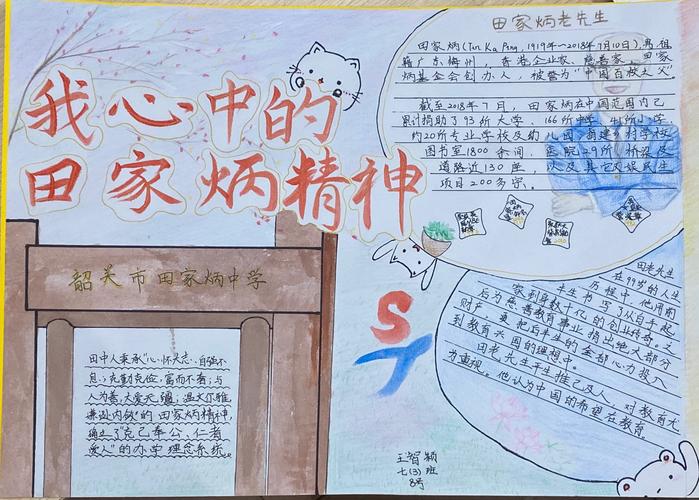 我心中的
田家炳精神
田家炳老先生
田家炳(Tin Ka Ping, 1919年～2018年7月10日),男,祖
籍广东梅州，香港企业家、慈善家、田家
炳基金会创办人，被誉为“中国百校之父”
截至2018年7月，田家炳在中国范围内已
累计捐助了93所大学、166所中学、41所小学、
约20所专业学校及幼儿园，捐建乡村学校
图书室1800余间、医院29所，桥梁及
道路近130座，以及其它及娱民生
项目200多宗。
韶关市田家炳中学
田中人秉承“心怀大志，自强不
息；克勤克俭，富而不奢；与
人为善，大爱无疆；温文尔雅
谦逊内敛”的田家炳精神，
确立了“克己奉公，仁者
爱人”的办学理念系统。
ST
田老先生
在99岁的人生
历程中，他用前
半生书写了从白手起
家到身数十亿的创业传奇，之
后为慈善教育事业捐出绝大部分
财产，更把后半生的全部心力投入
到教育兴国的理想中。
田老先生平生推己及人，对教育尤
为重视，他认为中国的希望在教育。
王智颖
七(3)班
8号